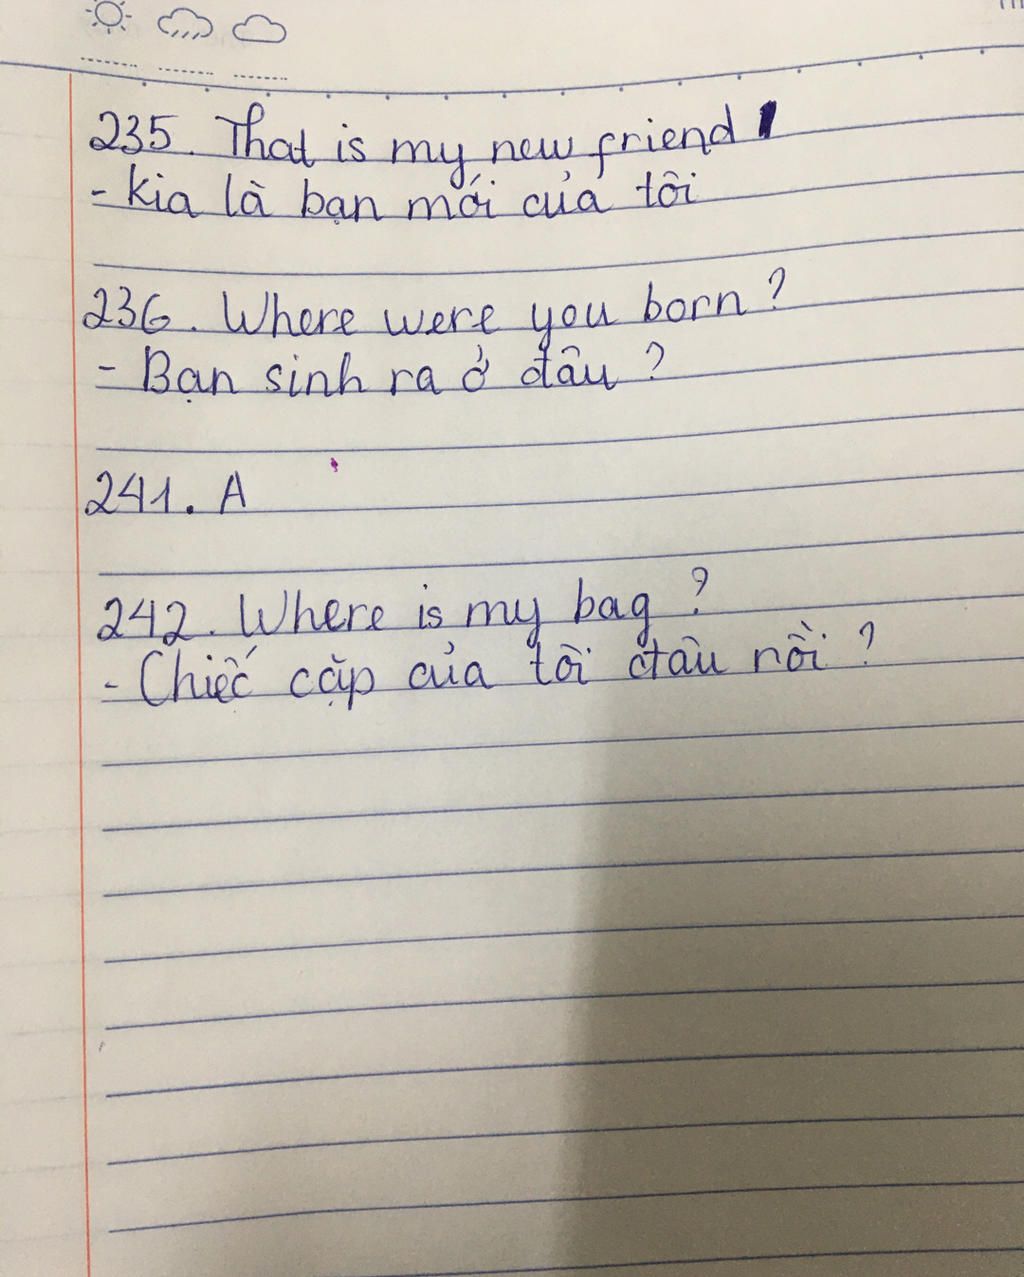 235. That is my new friend
- Kia là bạn mới của tôi
236. Where were you born?
- Bạn sinh ra ở đâu?
241. A
242. Where is my bag?
- Chiếc cặp của tôi đâu rồi?